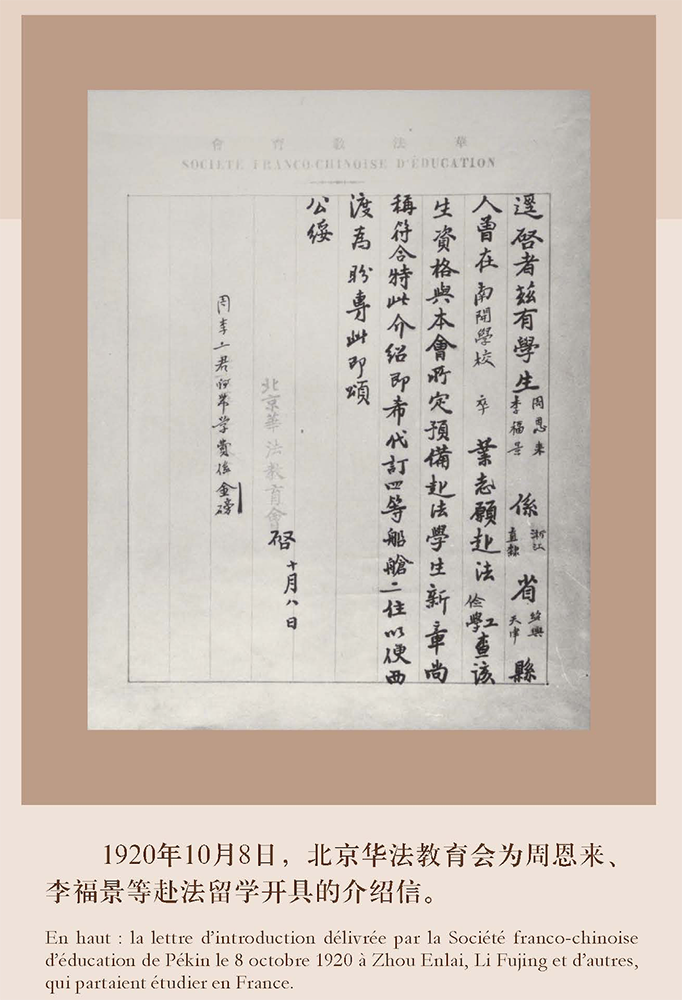 華法教育會
SOCIÉTÉ FRANCO-CHINOISE D'ÉDUCATION
逕啓者茲有學生周恩来李福景係浙江直隸省紹興天津縣
人曾在南開學校卒業志願赴法儉學工查該
生資格與本會所定預備赴法學生新章尚
稱符合特此介紹即希代訂四等船艙二住以便西
渡為盼專此即頌
公綏
北京華法教育會啓 十月八日
周李二君帶学費係金磅
1920年10月8日，北京华法教育会为周恩来、
李福景等赴法留学开具的介绍信。
En haut : la lettre d'introduction délivrée par la Société franco-chinoise
d'éducation de Pékin le 8 octobre 1920 à Zhou Enlai, Li Fujing et d'autres,
qui partaient étudier en France.